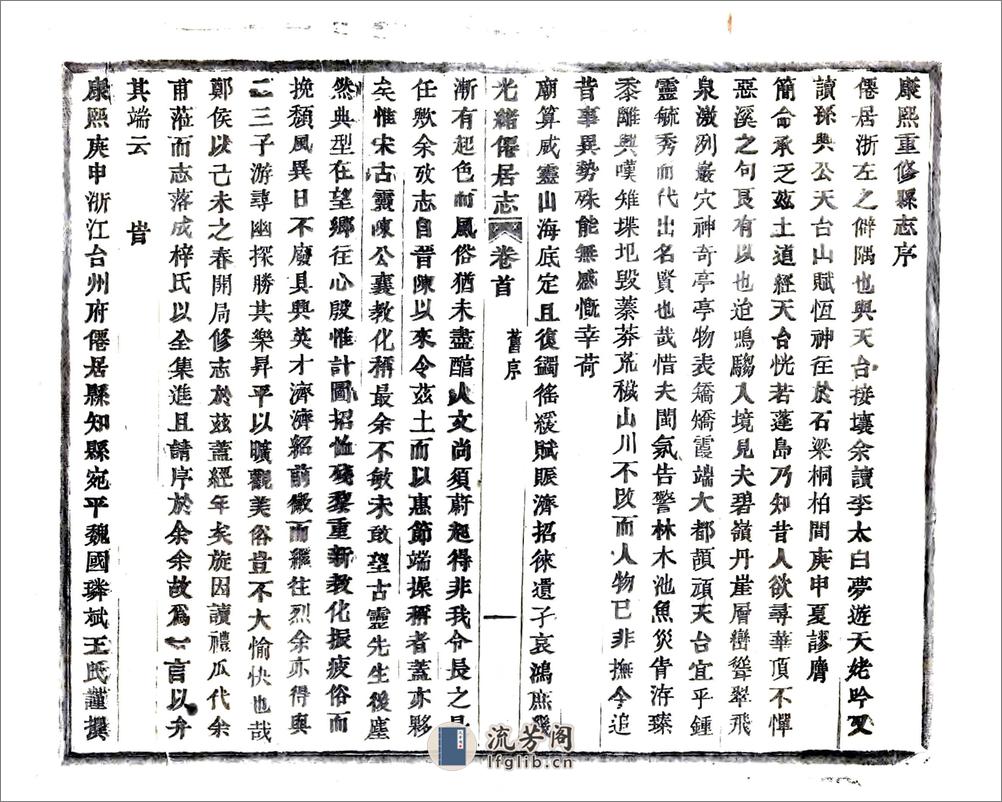 康熙重修縣志序
僊居浙左之僻隅也與天台接壤余讀李太白夢遊天姥吟又
讀孫興公天台山賦恆神往於石梁桐柏間庚申夏謬膺
簡命承乏玆土道經天台恍若蓬島乃知昔人欲尋華頂不憚
惡溪之句良有以也迨鳴騶入境見夫碧嶺丹崖層巒聳翠飛
泉激冽巖穴神奇亭亭物表矯矯霞端大都頡頏天台宜乎鍾
靈毓秀而代出名賢也哉惜夫閩氛告警林木池魚災眚洊臻
黍離興嘆雉堞圮毀蓁莽荒穢山川不改而人物已非撫今追
昔事異勢殊能無感慨幸荷
廟算威靈山海底定且復蠲徭緩賦賑濟招徠遺孑哀鴻庶幾
光緒僊居志 卷首 舊序 一
漸有起色而風俗猶未盡醇人文尚須蔚起得非我令長之是
任歟余攷志自晉陳以來令玆土而以惠節端操稱者蓋亦夥
矣惟宋古靈陳公襄教化稱最余不敏未敢望古靈先生後塵
然典型在望鄉往心殷惟計圖招恤殘黎重新教化振疲俗而
挽頹風異日不廢具興英才濟濟紹前徽而繼往烈余亦得與
二三子游尋幽探勝其樂昇平以曠觀美俗豈不大愉快也哉
鄭侯以己未之春開局修志於玆蓋經年矣旋因讀禮瓜代余
甫蒞而志落成梓氏以全集進且請序於余余故爲一言以弁
其端云 旹
康熙庚申浙江台州府僊居縣知縣宛平魏國璘斌王氏謹撰
流芳阁
lfglib.cn